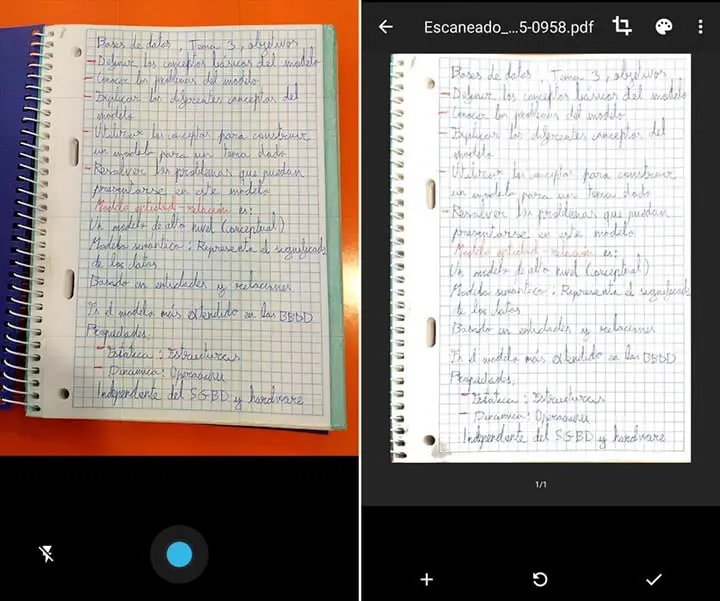 Bases de datos, Tema 3, objetivos
- Definir los conceptos básicos del modelo
- Conocer los problemas del modelo
- Explicar los diferentes conceptos del
modelo
- Utilizar los conceptos para construir
un modelo para un tema dado
- Resolver los problemas que puedan
presentarse en este modelo
Modelo entidad-relación es:
Un modelo de alto nivel (conceptual)
Modelo semántico: Representa el significado
de los datos
Basado en entidades y relaciones
Es el modelo más extendido en las BBDD
Propiedades:
- Estática: Estructuras
- Dinámica: Operaciones
Independente del SGBD y hardware
Escaneado_...5-0958.pdf
Bases de datos, Tema 3, objetivos
- Definir los conceptos básicos del modelo
- Conocer los problemas del modelo
- Explicar los diferentes conceptos del
modelo
- Utilizar los conceptos para construir
un modelo para un tema dado
- Resolver los problemas que puedan
presentarse en este modelo
Modelo entidad-relación es:
Un modelo de alto nivel (conceptual)
Modelo semántico: Representa el significado
de los datos
Basado en entidades y relaciones
Es el modelo más extendido en las BBDD
Propiedades:
- Estática: Estructuras
- Dinámica: Operaciones
Independente del SGBD y hardware
1/1